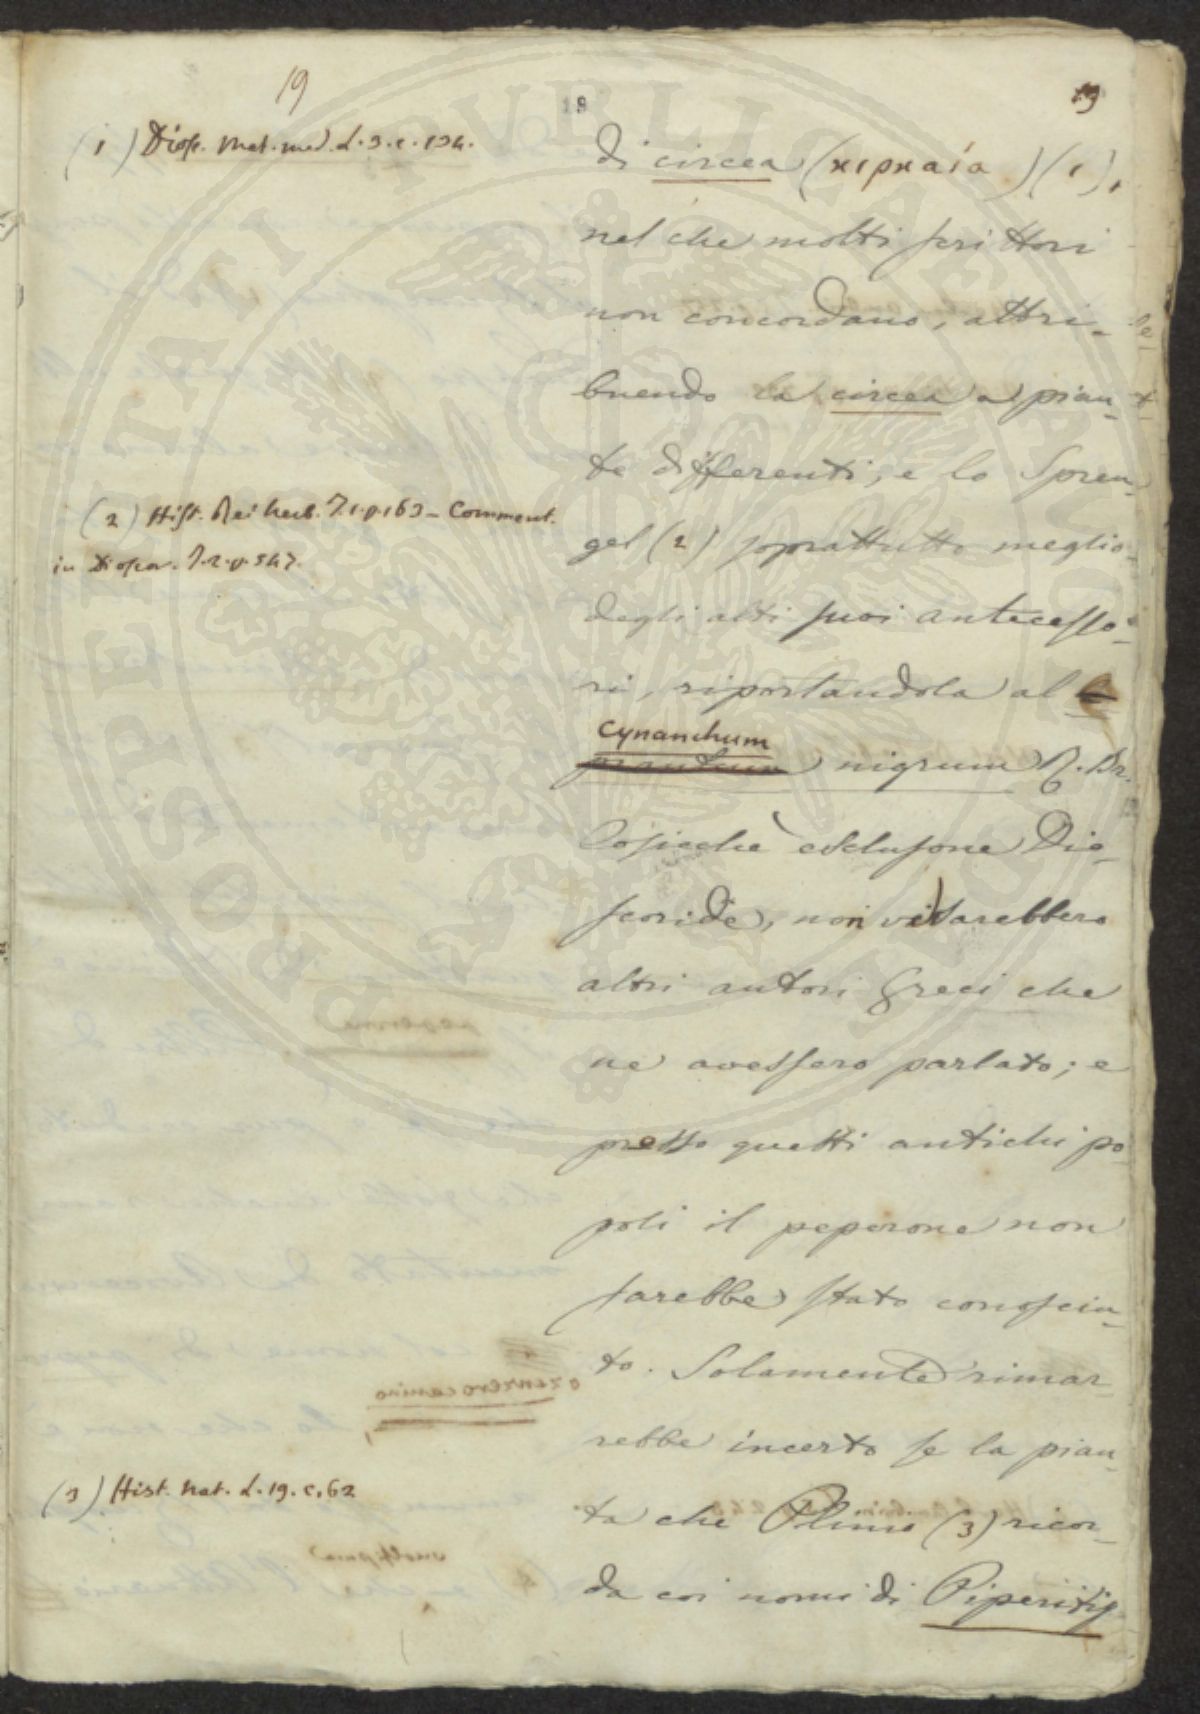 19
19
19
(1) Diosc. Mat. med. L. 3. c. 134.
di circea (κιρκαία) (1),
nel che molti scrittori
non concordano, attri-
buendo la circea a pian-
te differenti, e lo Spren-
gel (2) soprattutto meglio
degli altri suoi antecesso-
ri, riportandola al
Cynanchum
nigrum R. Br.
Cosicchè esclusone Dio-
scoride, non vi sarebbero
altri autori Greci che
ne avessero parlato; e
presso questi antichi po-
poli il peperone non
sarebbe stato conosciu-
to. Solamente rimar-
rebbe incerto se la pian-
ta che Plinio (3) ricor-
da coi nomi di Piperitis
(2) Hist. Rei herb. T. 1. p. 163 - Comment.
in Diosco. T. 2. p. 547.
(3) Hist. Nat. L. 19. c. 62
PROSPERITATI PUBLICAE